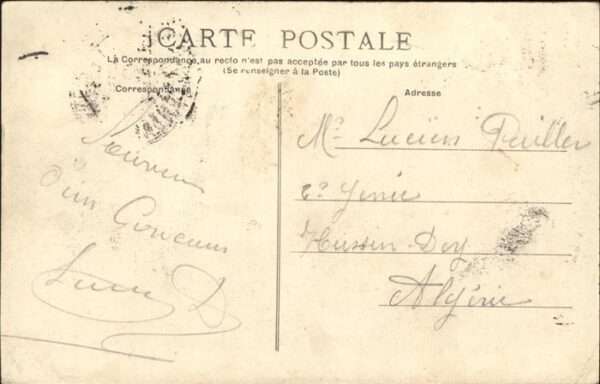 CARTE POSTALE
La Correspondance, au recto n'est pas acceptée par tous les pays étrangers
(Se renseigner à la Poste)
Correspondance
Adresse
Souvenir
d'un
Lucien
Mr Lucien
2e Génie
Hussein-Dey
Algérie